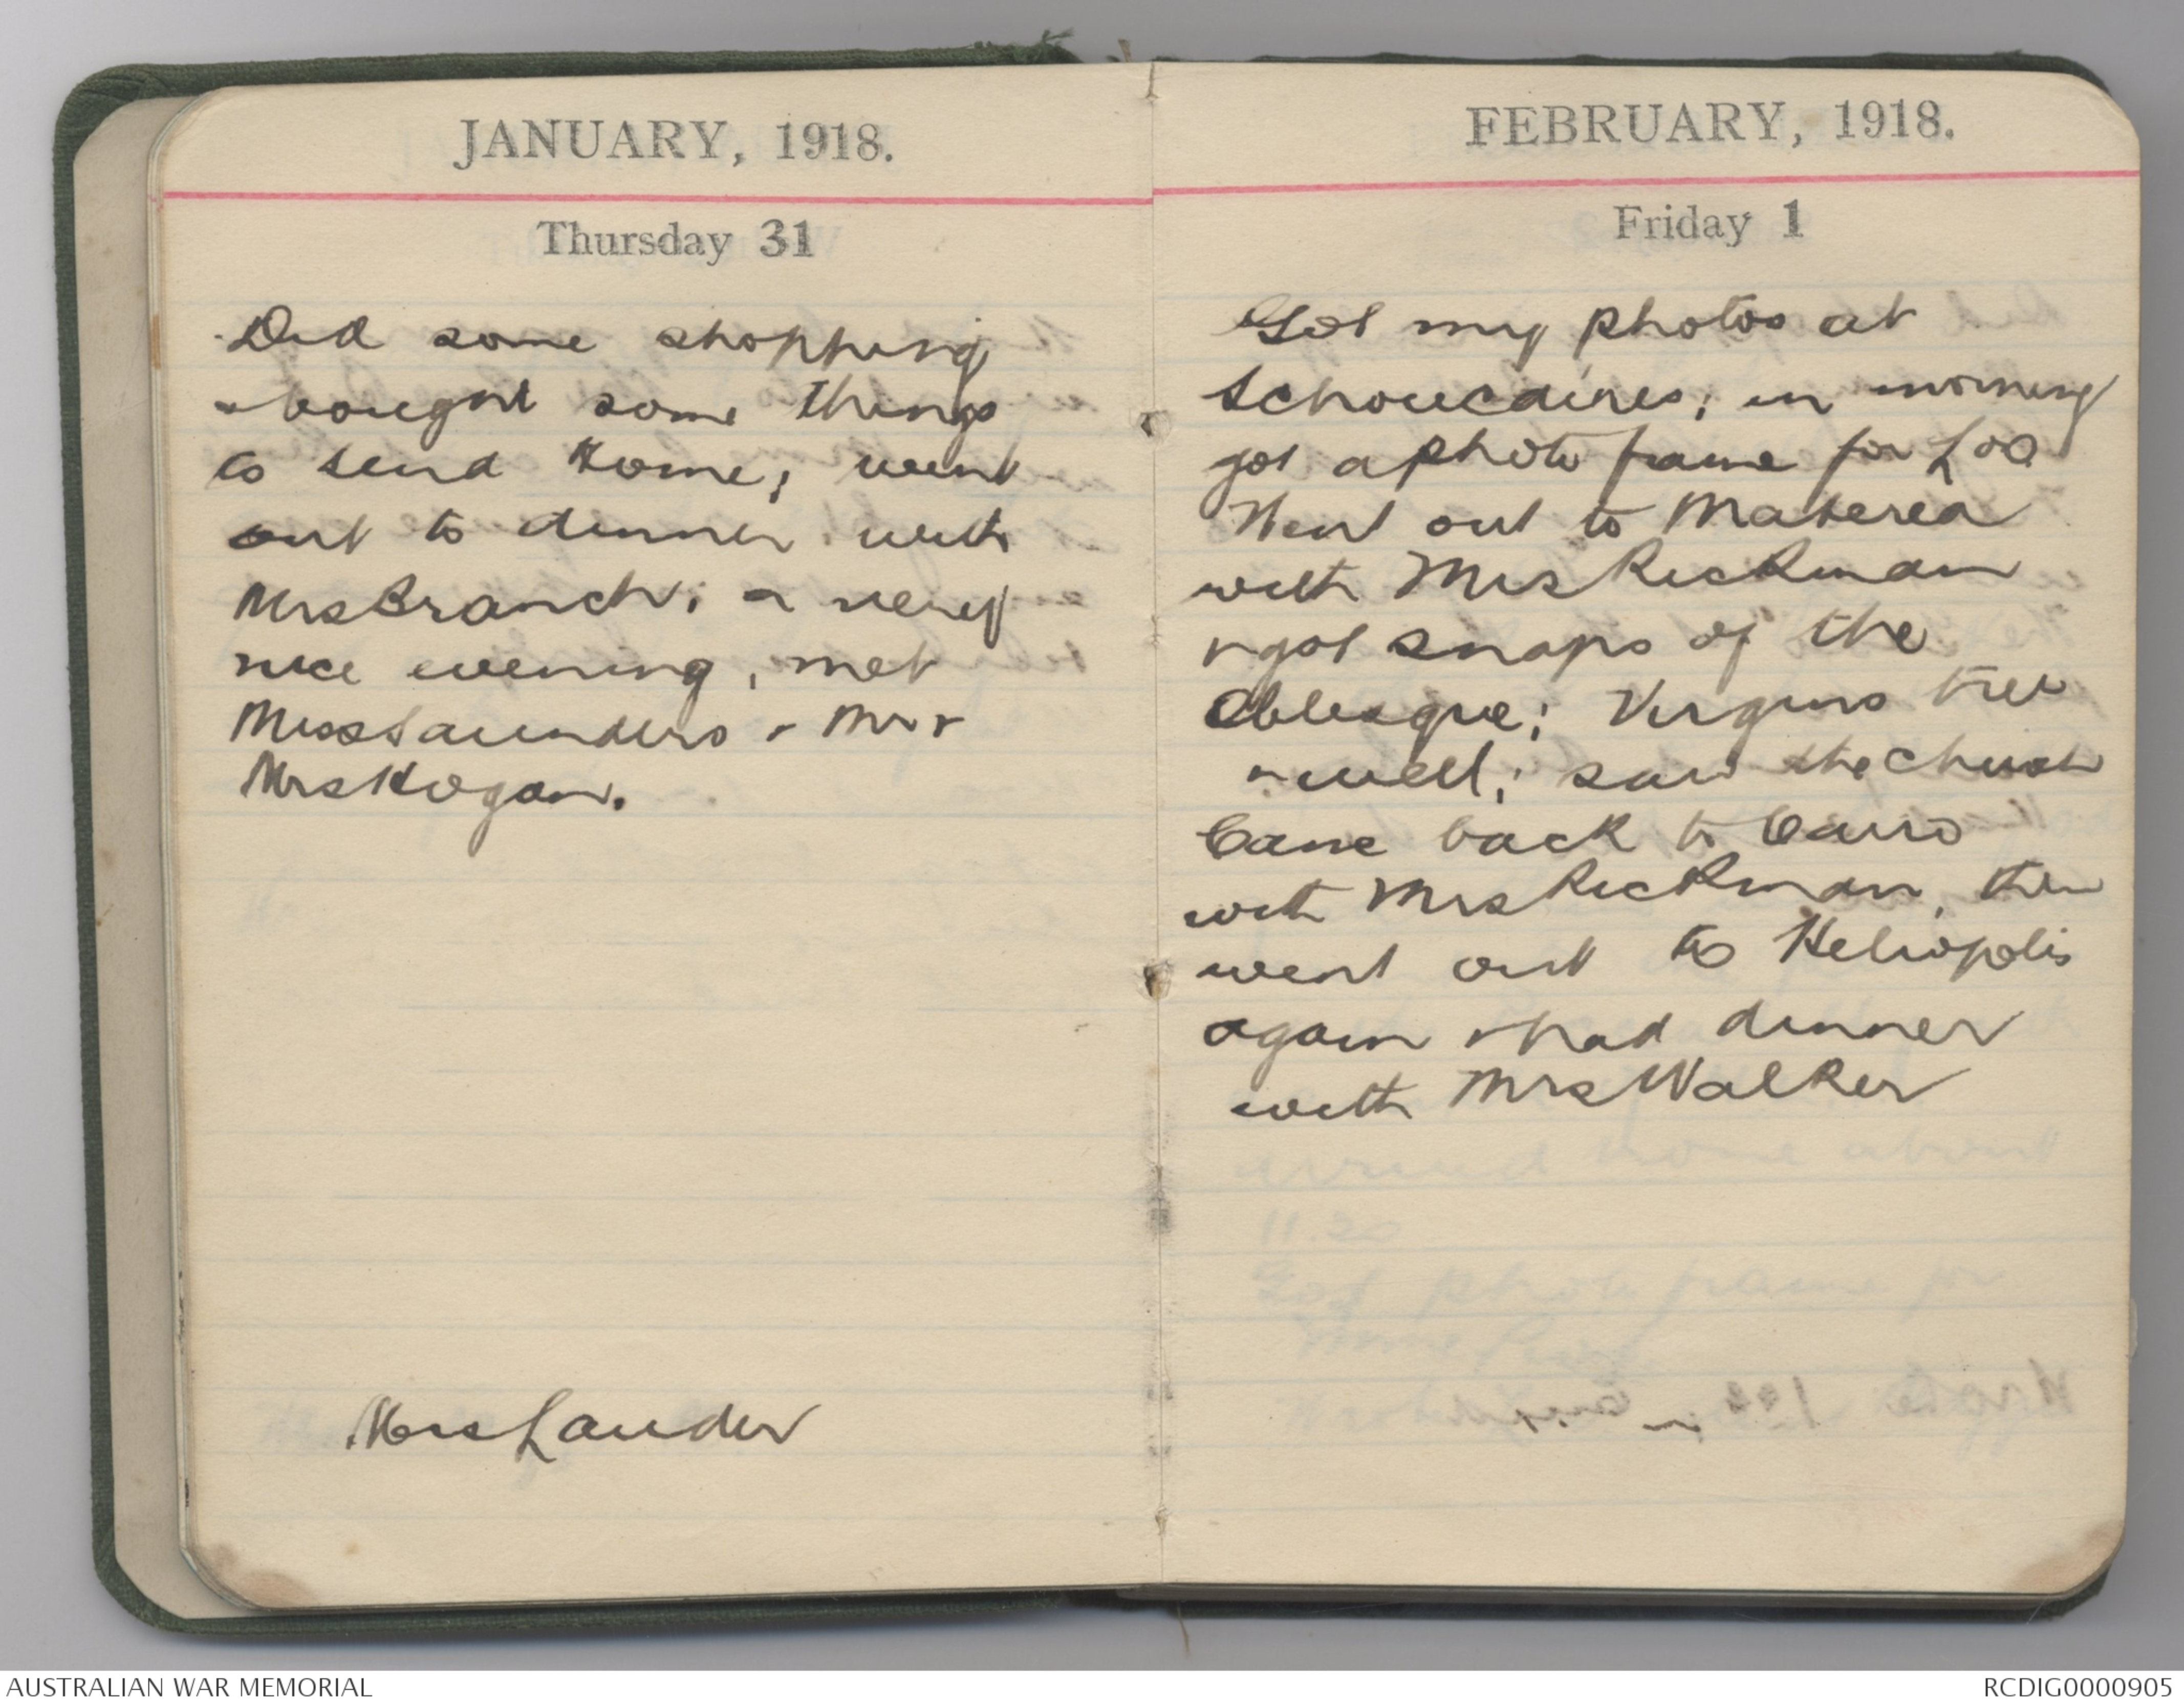 JANUARY, 1918.
Thursday 31
Did some shopping
& bought some things
to send Home; went
out to dinner with
Mrs Branch; a very
nice evening, met
Miss Saunders & Mr &
Mrs Hogan.
Mrs Lauder
FEBRUARY, 1918.
Friday 1
Got my photos at
Schoucaires; in morning
got a photo frame for
Went out to Materea
with Mrs Rickman
& got snaps of the
Oblesque; Virgins tree
& well; saw the church
Came back to Cairo
with Mrs Rickman, then
went out to Heliopolis
again & had dinner
with Mrs Walker
around home about
11.20
Got photo frame for
AUSTRALIAN WAR MEMORIAL
RCDIG0000905